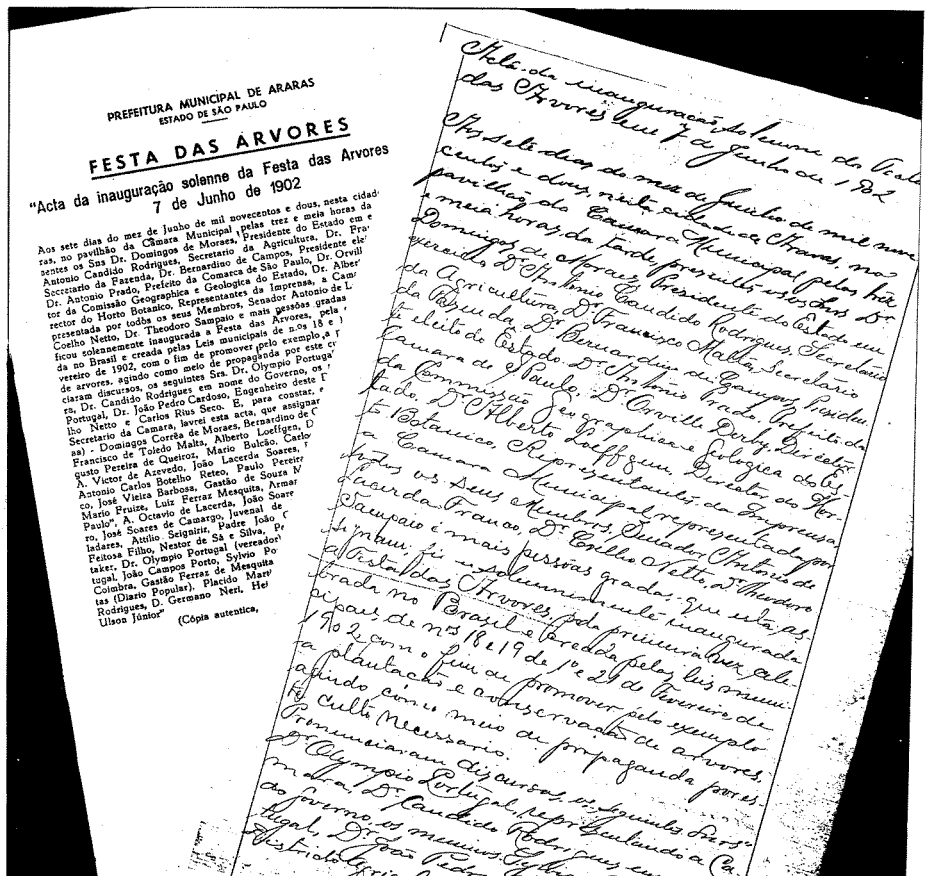 PREFEITURA MUNICIPAL DE ARARAS
ESTADO DE SÃO PAULO
FESTA DAS ÁRVORES
"Acta da inauguração solenne da Festa das Arvores
7 de Junho de 1902
Aos sete dias do mez de Junho de mil novecentos e dous, nesta cidad
ras, no pavilhão da Câmara Municipal pelas trez e meia horas da
sentes os Sns Dr. Domingos de Moraes, Presidente do Estado em e
Antonio Candido Rodrigues, Secretario da Agricultura, Dr. Fra
Secretario da Fazenda, Dr. Bernardino de Campos, Presidente ele
Dr. Antonio Prado, Prefeito da Comarca de São Paulo, Dr. Orvill
tor da Comissão Geographica e Geologica do Estado, Dr. Alber
rector do Horto Botanico, Representantes da Imprensa, a Cama
presentada por todos os seus Membros, Senador Antonio de L
Coelho Netto, Dr. Theodoro Sampaio e mais pessôas gradas
ficou solennemente inaugurada a Festa das Árvores, pela
da no Brasil e creada pelas Leis municipais de n.os 18 e 1
vereiro de 1902, com o fim de promover pelo exemplo a
de arvores, agindo como meio de propaganda por este c
ciaram discursos, os seguintes Srs. Dr. Olympio Portuga
ra, Dr. Candido Rodrigues em nome do Governo, os
Portugal, Dr. João Pedro Cardoso, Engenheiro deste D
lho Netto e Carlos Rius Seco. E, para constar,
Secretario da Camara, lavrei esta acta, que assignar
aa) - Domingos Corrêa de Moraes, Bernardino de C
Francisco de Toledo Malta, Alberto Loefgren, D
gusto Pereira de Queiroz, Mario Bulcão, Carlo
A. Victor de Azevedo, João Lacerda Soares,
Antonio Carlos Botelho Reteo, Paulo Pereir
co, José Vieira Barbosa, Gastão de Souza M
Mario Fruize, Luiz Ferraz Mesquita, Armar
Paulo", A. Octavio de Lacerda, João Soare
ro, José Soares de Camargo, Juvenal de
ladares, Attilio Seignirir, Padre João
Feitosa Filho, Nestor de Sá e Silva, Pr
taker, Dr. Olympio Portugal (vereador)
tugal, João Campos Porto, Sylvio Po
Coimbra, Gastão Ferraz de Mesquita
tas (Diario Popular). Placido Mart
Rodrigues, D. Germano Neri, He
Ulson Júnior"
(Cópia autentica,
Acta da inauguração solenne da Festa
das Arvores em 7 de Junho de 1902
Aos sete dias do mez de Junho de mil nove
centos e dous, nesta cidade de Araras, no
pavilhão da Camara Municipal, pelas tres
e meia horas da tarde, presentes os Sns Dr
Domingos de Moraes, Presidente do Estado em
exercicio, Dr Antonio Candido Rodrigues, Secretario
da Agricultura, Dr Francisco Malta, Secretario
da Fazenda, Dr Bernardino de Campos, Presiden
te eleito do Estado, Dr Antonio Prado, Prefeito da
Camara de S Paulo, Dr Orville Derby, Director
da Commissão Geographica e Geologica do Es-
tado, Dr Alberto Loeffgren, Director do Hor-
to Botanico, Representantes da Imprensa,
a Camara Municipal representada por
todos os seus Membros, Senador Antonio de
Lacerda Franco, Dr Coelho Netto, Dr Theodoro
Sampaio e mais pessôas gradas, que esta as-
signam, foi solennemente inaugurada
a Festa das Arvores, pela primeira vez cele-
brada no Brasil e creada pelas leis muni-
cipaes, de nos 18 e 19 de 1º e 21 de Fevereiro de
1902, com o fim de promover pelo exemplo
a plantação e conservação de arvores,
agindo como meio de propaganda por es-
te culto necessario.
Pronunciaram discursos, os seguintes Snrs
Dr Olympio Portugal, representando a Ca-
mara, Dr Candido Rodrigues, em
do Governo, os meninos Sylvio
tugal, Dr João Pedro
Districto Agric